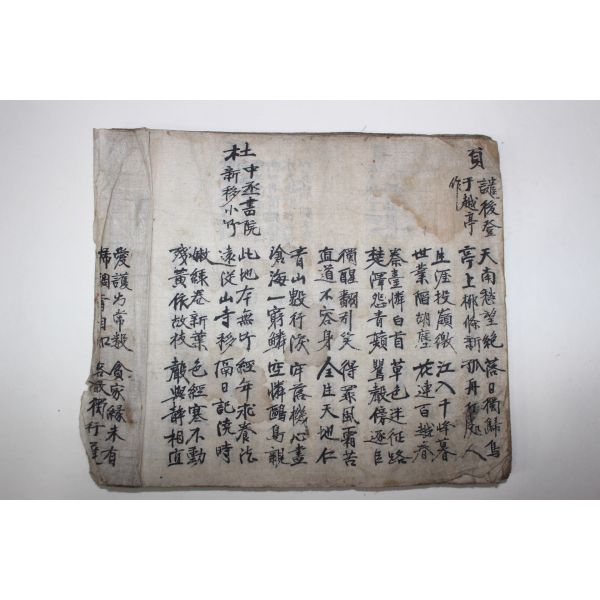 負謫後登
于越亭
作
天南愁望絕 落日獨歸鳥
亭上柳條新 孤舟何處人
生涯投嶺徼 江入千峰暮
世業陷胡塵 花連百越春
秦臺憐白首 草色迷征路
楚澤怨青蘋 鶯聲傍逐臣
獨醒翻引笑 得罪風霜苦
直道不容身 全生天地仁
青山數行淚 牢落機心盡
滄海一窮鱗 空憐鷗鳥親
杜中丞書院
新移小竹
此地本無竹 經年求養法
遠從山寺移 隔日記澆時
嫩綠卷新葉 色經寒不動
殘黃依故枝 聲與許相宜
愛護為常數 貧家緣未有
自知 客散獨行遲